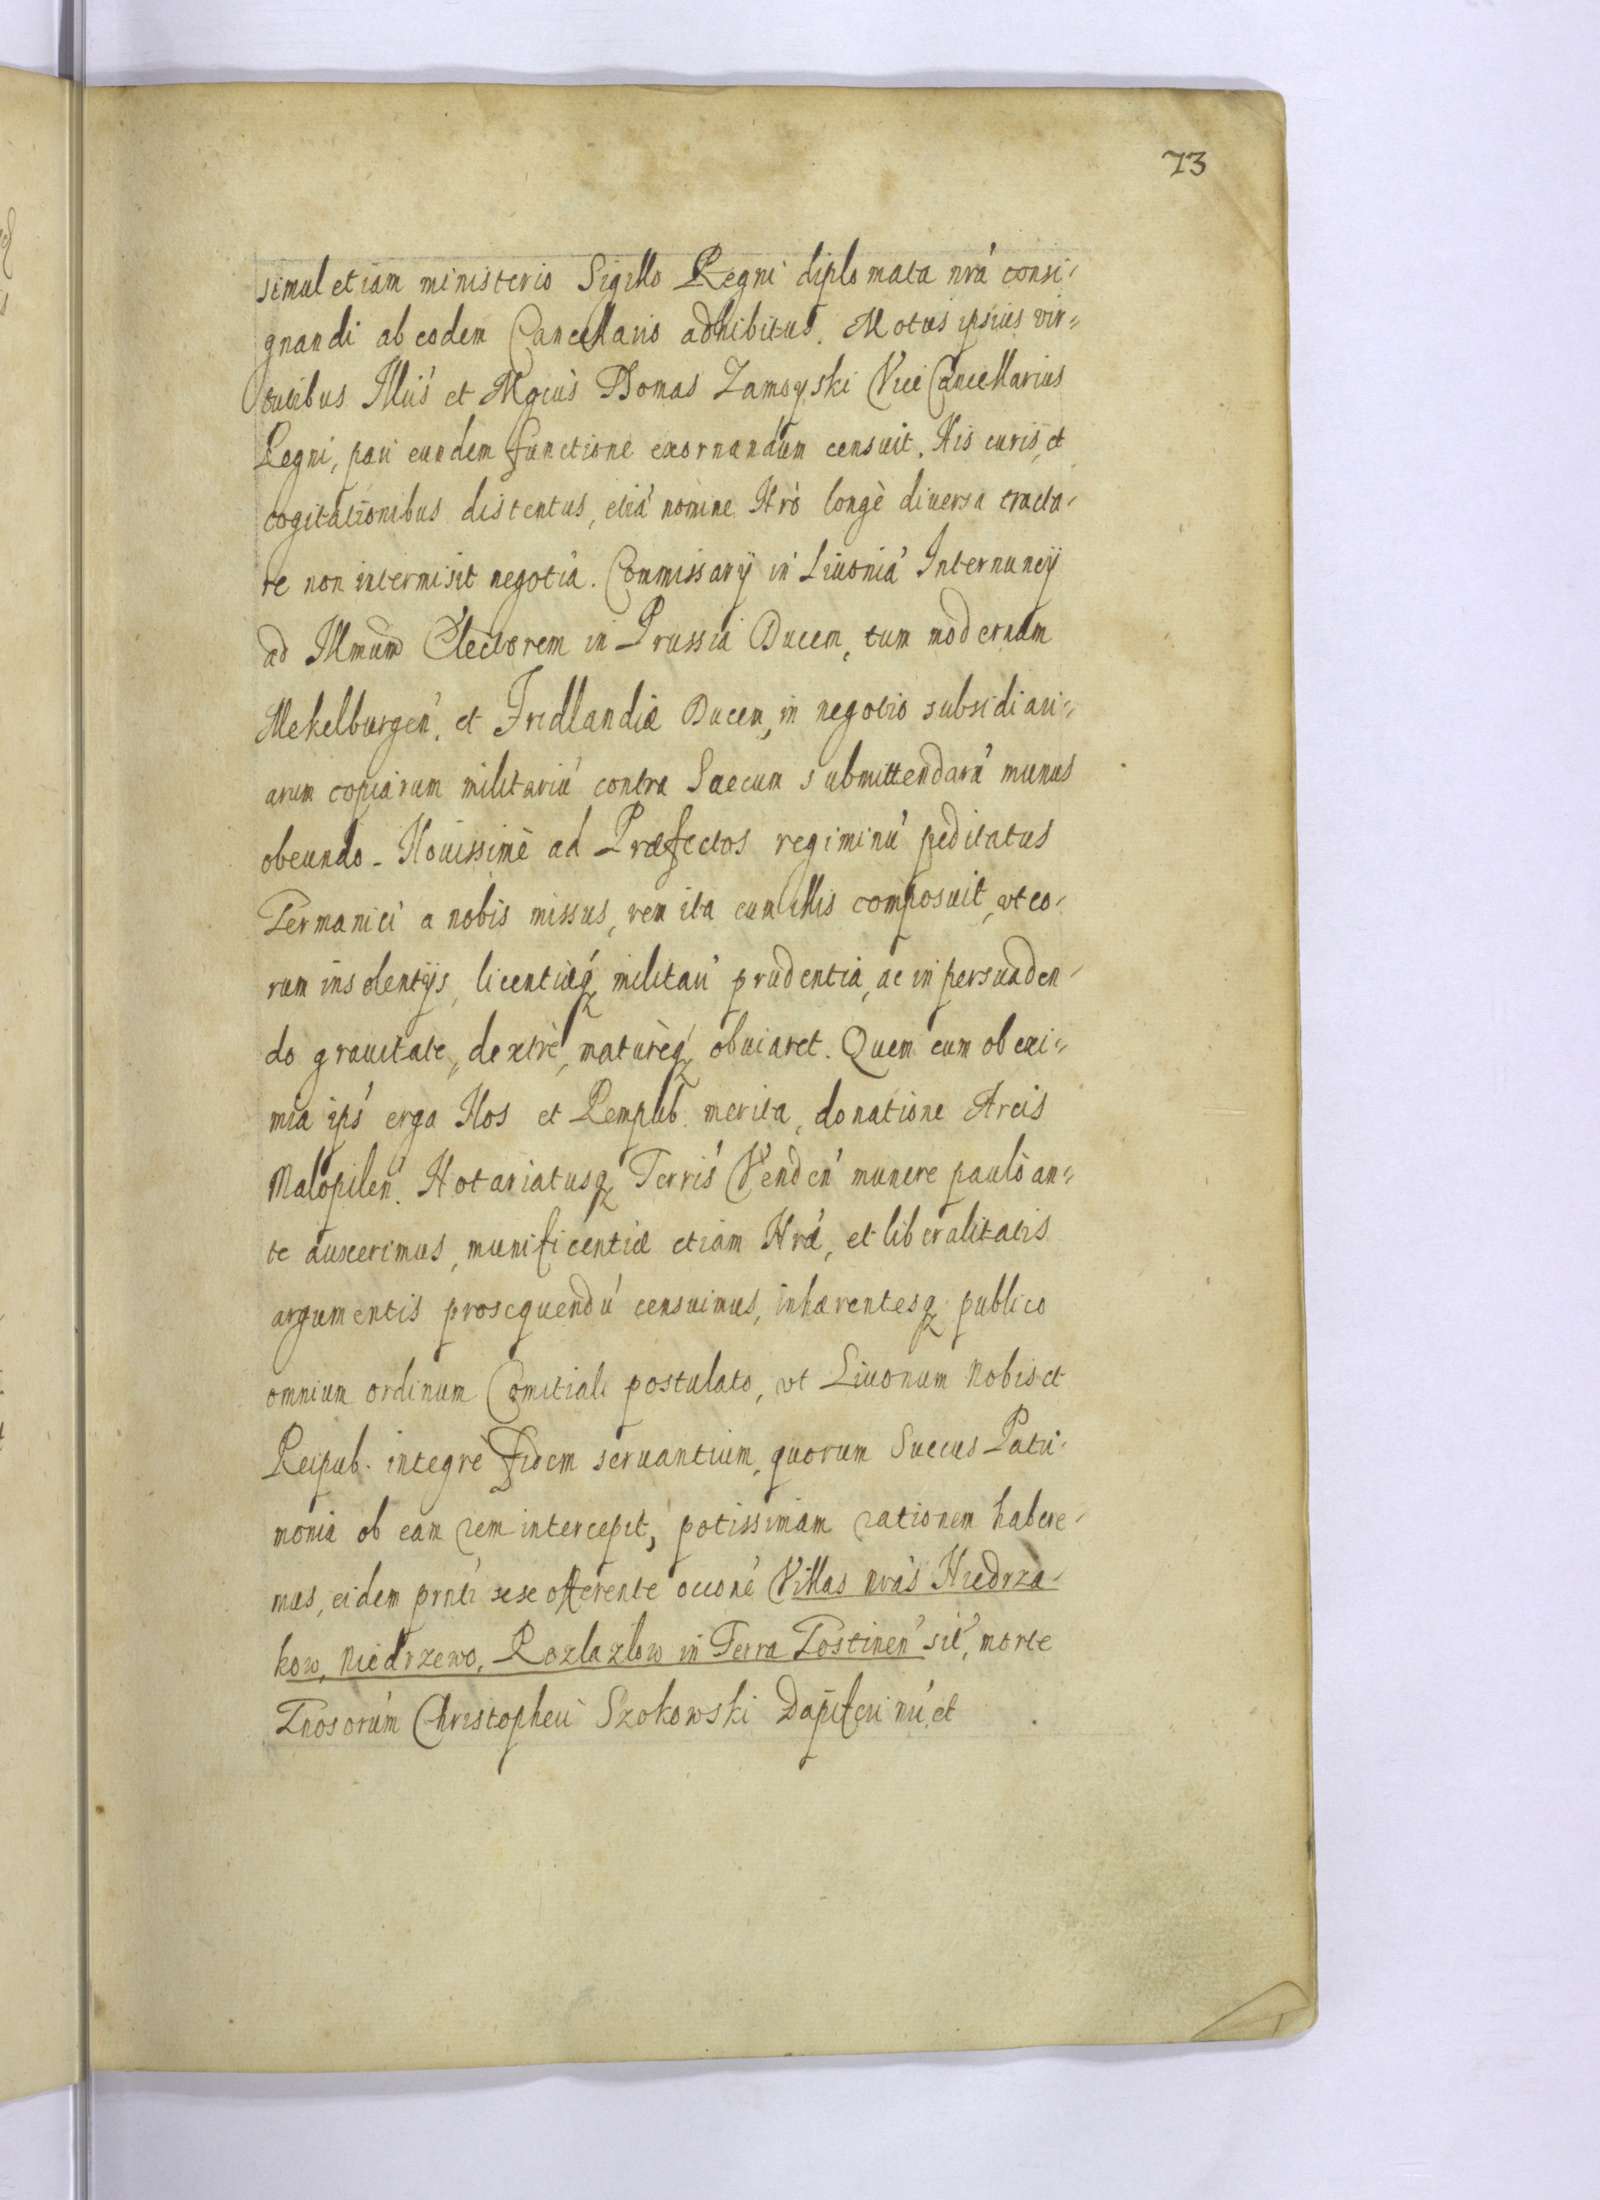 73
simul etiam ministerio Sigillo Regni diplomata nrá consi-
gnandi ab eodem Cancellario adhibitus. Motus ipsius vir=
tutibus Illus et Mgcus Thomas Zamoyski Vice Cancellarius
Regni, pari eundem functione exornandum censuit. His curis, et
cogitationibus distentus, etiá nomine Nrò longè diuersa tracta-
re non intermisit negotia. Commissarÿ in Liuoniá Internuncÿ
ad Illmum Electorem in Prussia Ducem, tum modernum
Mekelburgen. et Fridlandiæ Ducem, in negotio subsidiari=
arum copiarum militariú contra Suecum submittendarú munus
obeundo - Nouissimè ad Præfectos regiminú peditatus
Germanici a nobis missus, rem ita cum illis composuit, vt eo-
rum insolentÿs, licentiæq militari prudentia, ac in persuaden-
do grauitate, dextrè, maturèq obuiaret. Quem cum ob exi=
mia ips erga Nos et Rempub. merita, donatione Arcis
Malopilen. Notariatusq Terris Venden munere paulò an=
te auxerimus, munificentiæ etiam Nrǽ, et liberalitatis
argumentis prosequendú censuimus, inhærentesq publico
omnium ordinum Comitiali postulato, vt Liuonum Nobis et
Reipub. integrè fidem seruantium, quorum Suecus Patri-
monia ob eam rem intercepit, potissimam rationem habere-
mus, eidem prnti sese offerente occone Villas nrás Niedrza-
kow, Niedrzewo, Rozlazlow in Terra Gostinen sit, morte
Gnosorúm Christopheri Szokowski Dapiferi nri, et